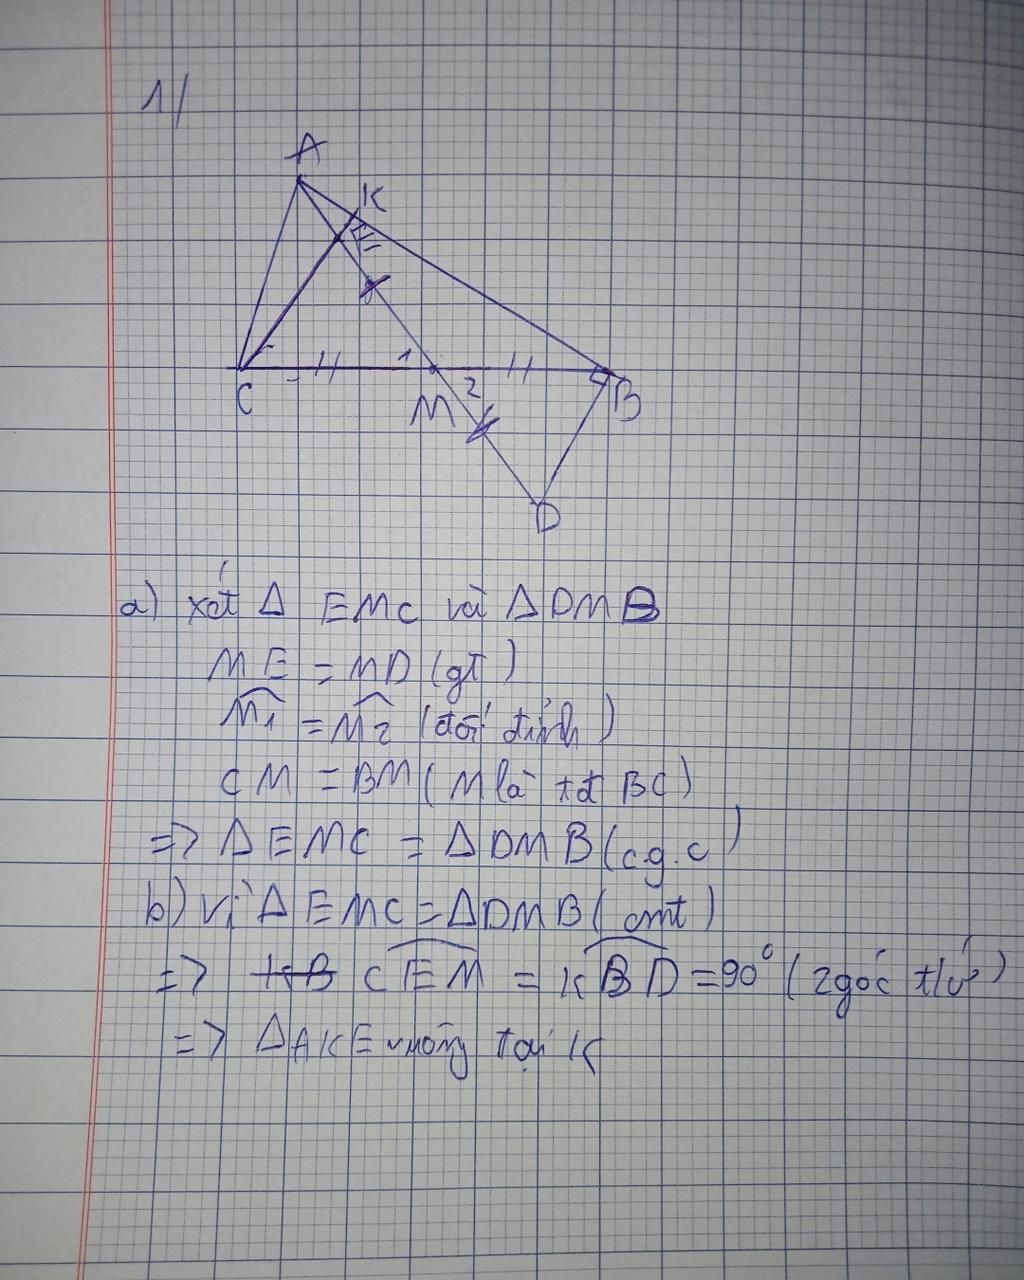 1/
A
K
E
1
C
M
2
B
D
a) xét Δ EMC và Δ DMB
ME = MD (gt)
M1 = M2 (đối đỉnh)
CM = BM (M là tđ BC)
=> Δ EMC = Δ DMB (c.g.c)
b) Vì Δ EMC = Δ DMB (cmt)
=> CEM = KBD = 90° (2 góc t/ứ)
=> Δ AKE vuông tại K